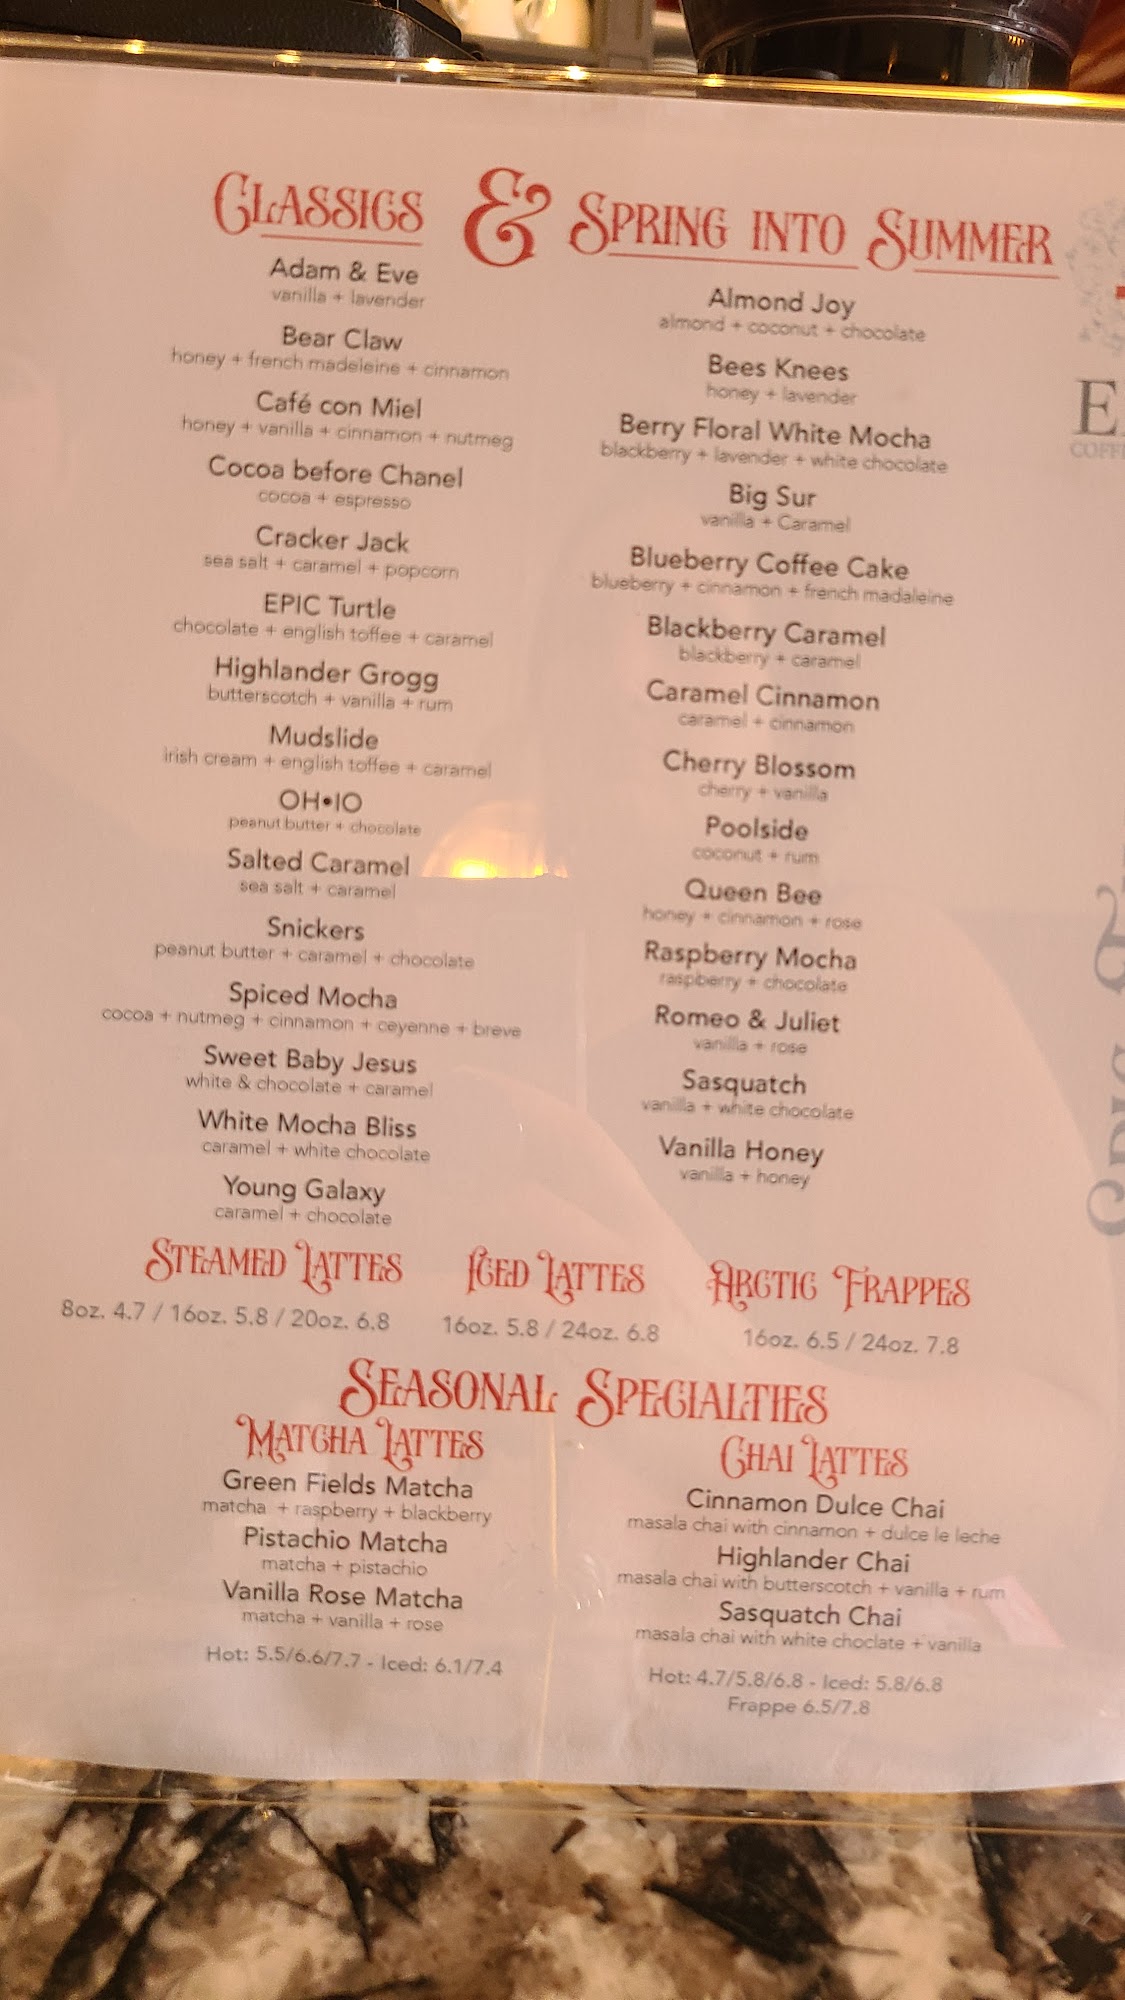 CLASSICS & SPRING INTO SUMMER
Adam & Eve
vanilla + lavender
Bear Claw
honey + french madeleine + cinnamon
Café con Miel
honey + vanilla + cinnamon + nutmeg
Cocoa before Chanel
cocoa + espresso
Cracker Jack
sea salt + caramel + popcorn
EPIC Turtle
chocolate + english toffee + caramel
Highlander Grogg
butterscotch + vanilla + rum
Mudslide
irish cream + english toffee + caramel
OH•IO
peanut butter + chocolate
Salted Caramel
sea salt + caramel
Snickers
peanut butter + caramel + chocolate
Spiced Mocha
cocoa + nutmeg + cinnamon + ceyenne + breve
Sweet Baby Jesus
white & chocolate + caramel
White Mocha Bliss
caramel + white chocolate
Young Galaxy
caramel + chocolate
Almond Joy
almond + coconut + chocolate
Bees Knees
honey + lavender
Berry Floral White Mocha
blackberry + lavender + white chocolate
Big Sur
vanilla + Caramel
Blueberry Coffee Cake
blueberry + cinnamon + french madaleine
Blackberry Caramel
blackberry + caramel
Caramel Cinnamon
caramel + cinnamon
Cherry Blossom
cherry + vanilla
Poolside
coconut + rum
Queen Bee
honey + cinnamon + rose
Raspberry Mocha
raspberry + chocolate
Romeo & Juliet
vanilla + rose
Sasquatch
vanilla + white chocolate
Vanilla Honey
vanilla + honey
STEAMED LATTES
8oz. 4.7 / 16oz. 5.8 / 20oz. 6.8
ICED LATTES
16oz. 5.8 / 24oz. 6.8
ARCTIC FRAPPES
16oz. 6.5 / 24oz. 7.8
SEASONAL SPECIALTIES
MATCHA LATTES
Green Fields Matcha
matcha + raspberry + blackberry
Pistachio Matcha
matcha + pistachio
Vanilla Rose Matcha
matcha + vanilla + rose
Hot: 5.5/6.6/7.7 - Iced: 6.1/7.4
CHAI LATTES
Cinnamon Dulce Chai
masala chai with cinnamon + dulce le leche
Highlander Chai
masala chai with butterscotch + vanilla + rum
Sasquatch Chai
masala chai with white choclate + vanilla
Hot: 4.7/5.8/6.8 - Iced: 5.8/6.8
Frappe 6.5/7.8